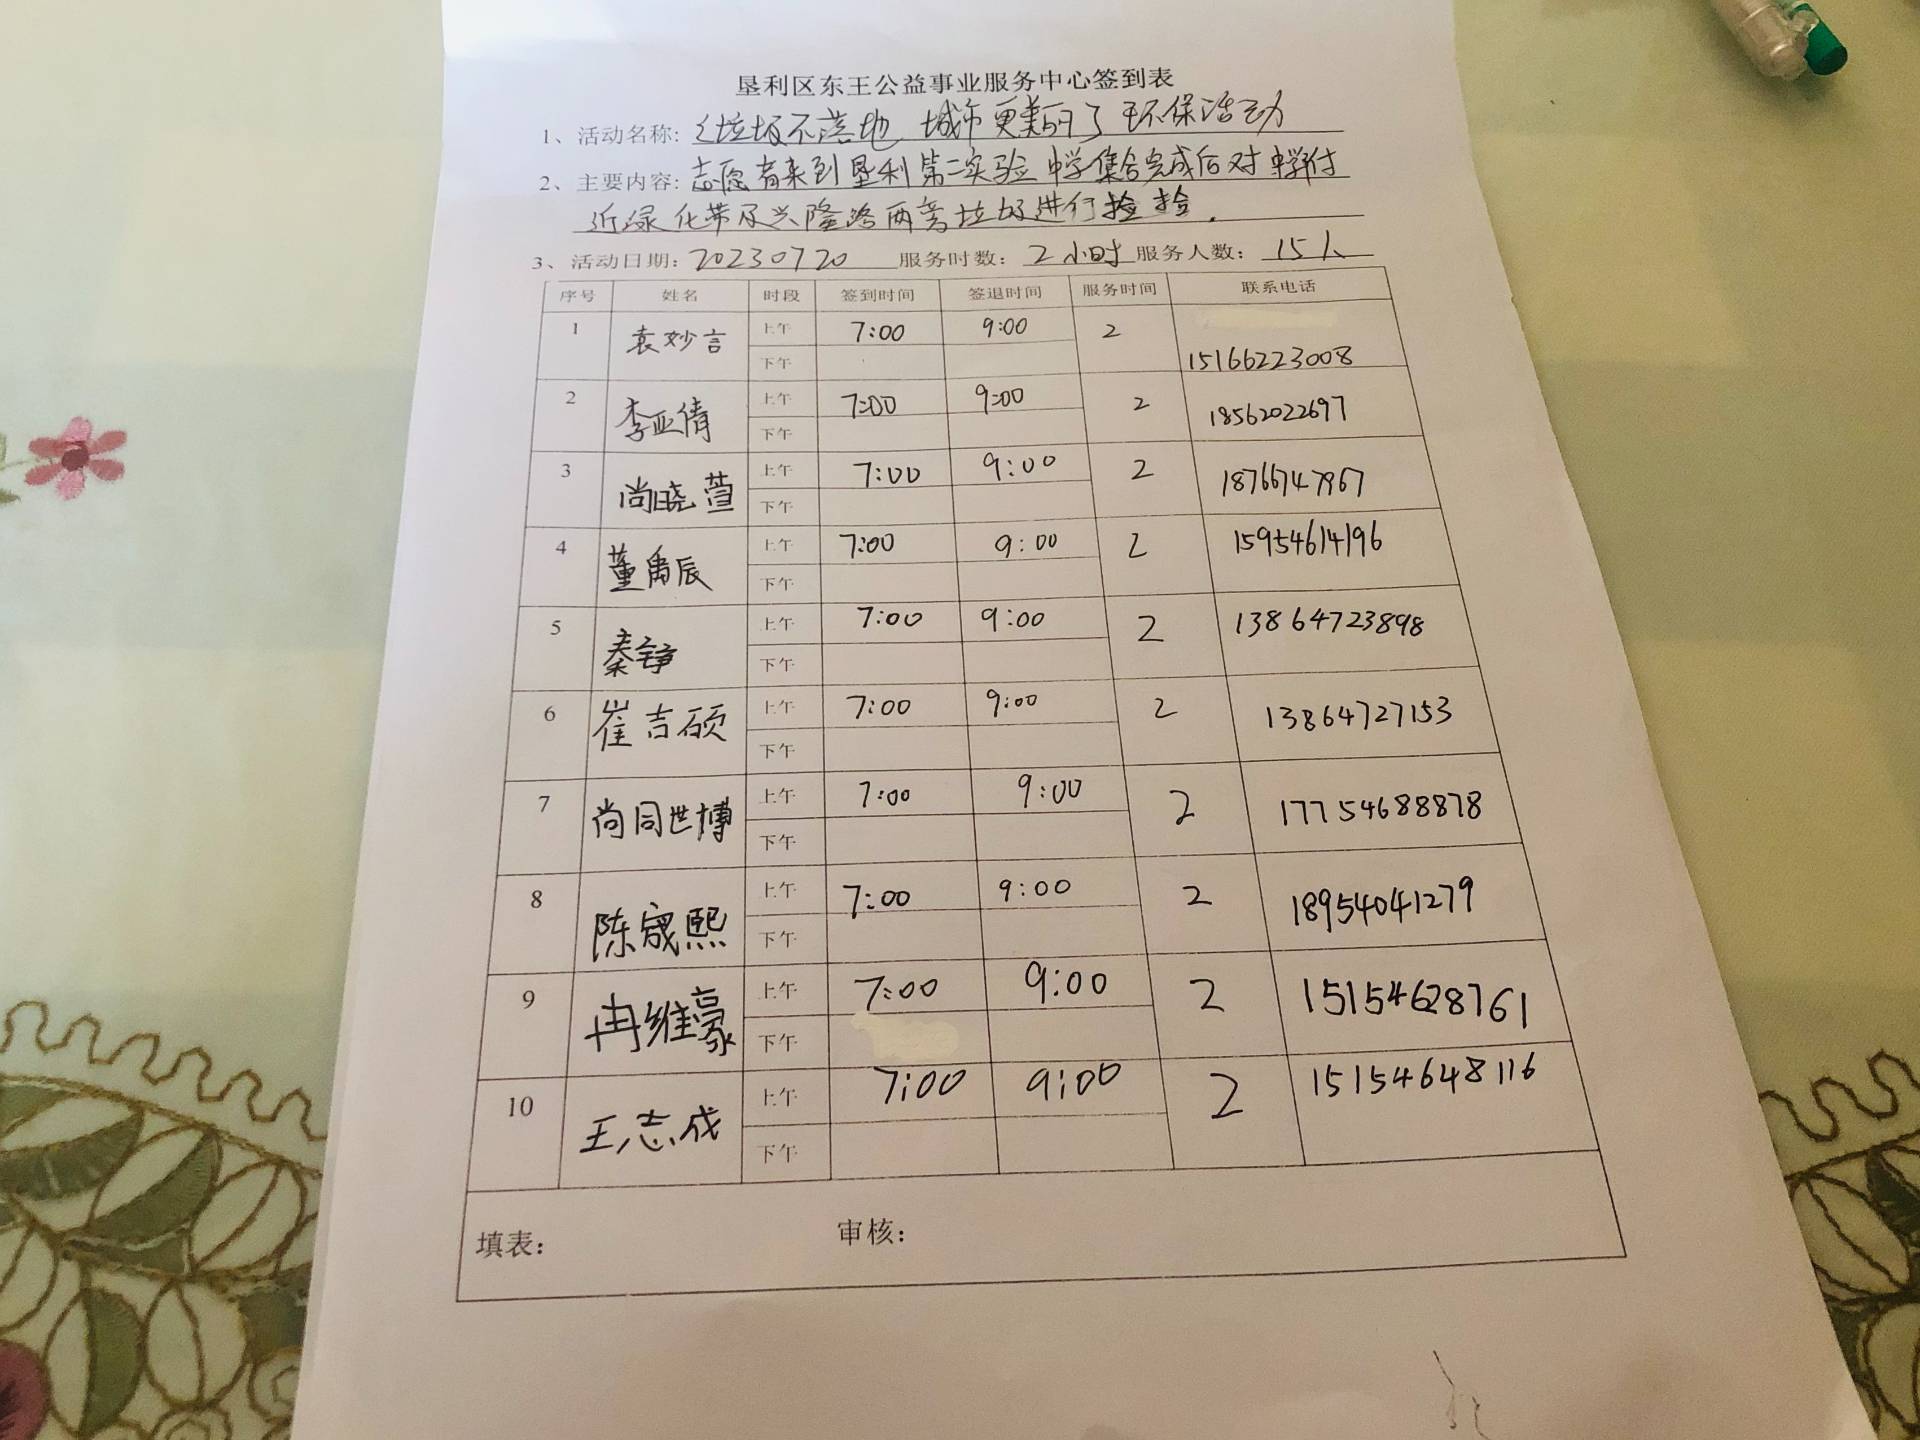 垦利区东王公益事业服务中心签到表
1、活动名称:《垃圾不落地 城市更美丽》环保活动
2、主要内容:志愿者来到垦利第二实验中学集合完成后对中学附
近绿化带及兴隆路两旁垃圾进行捡捡.
3、活动日期:20230720 服务时数: 2小时 服务人数: 15人
序号 姓名 时段 签到时间 签退时间 服务时间 联系电话
1 袁妙言 上午 7:00 9:00 2 15166223008
下午
2 李亚倩 上午 7:00 9:00 2 18562022697
下午
3 尚晓萱 上午 7:00 9:00 2 18766747967
下午
4 董禹辰 上午 7:00 9:00 2 15954614196
下午
5 秦铮 上午 7:00 9:00 2 13864723898
下午
6 崔吉硕 上午 7:00 9:00 2 13864727153
下午
7 尚同世博 上午 7:00 9:00 2 17754688878
下午
8 陈晟熙 上午 7:00 9:00 2 18954041279
下午
9 冉维豪 上午 7:00 9:00 2 15154628761
下午
10 王志成 上午 7:00 9:00 2 15154648116
下午
填表: 审核: